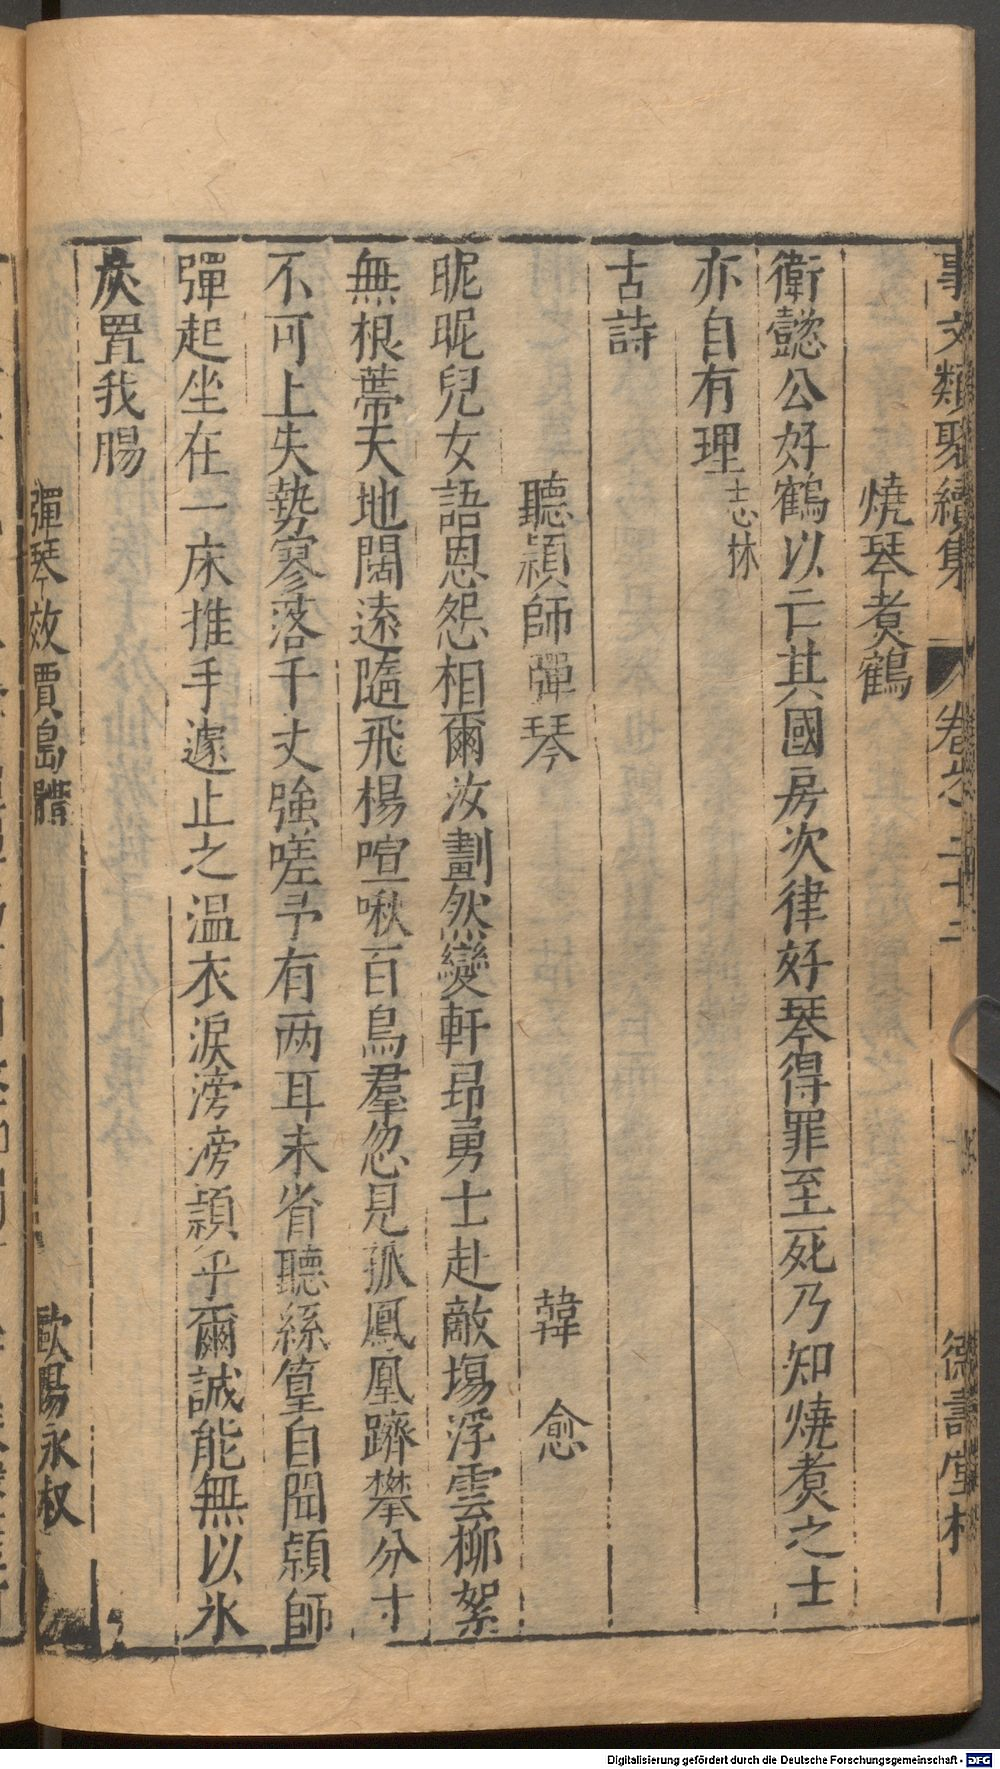 事文類聚續集 卷之二十二 德壽堂梓
燒琴煮鶴
衛懿公好鶴以亡其國房次律好琴得罪至死乃知燒煮之士
亦自有理志林
古詩
聽穎師彈琴 韓愈
昵昵兒女語恩怨相爾汝劃然變軒昂勇士赴敵塲浮雲柳絮
無根蔕天地闊遠隨飛楊喧啾百鳥羣忽見孤鳳凰躋攀分寸
不可上失勢寥落千丈強嗟予有两耳未省聽絲篁自聞頴師
彈起坐在一床推手遽止之温衣淚滂滂頴乎爾誠能無以氷
炭置我腸
彈琴效賈島體 歐陽永叔
Digitalisierung gefördert durch die Deutsche Forschungsgemeinschaft - DFG